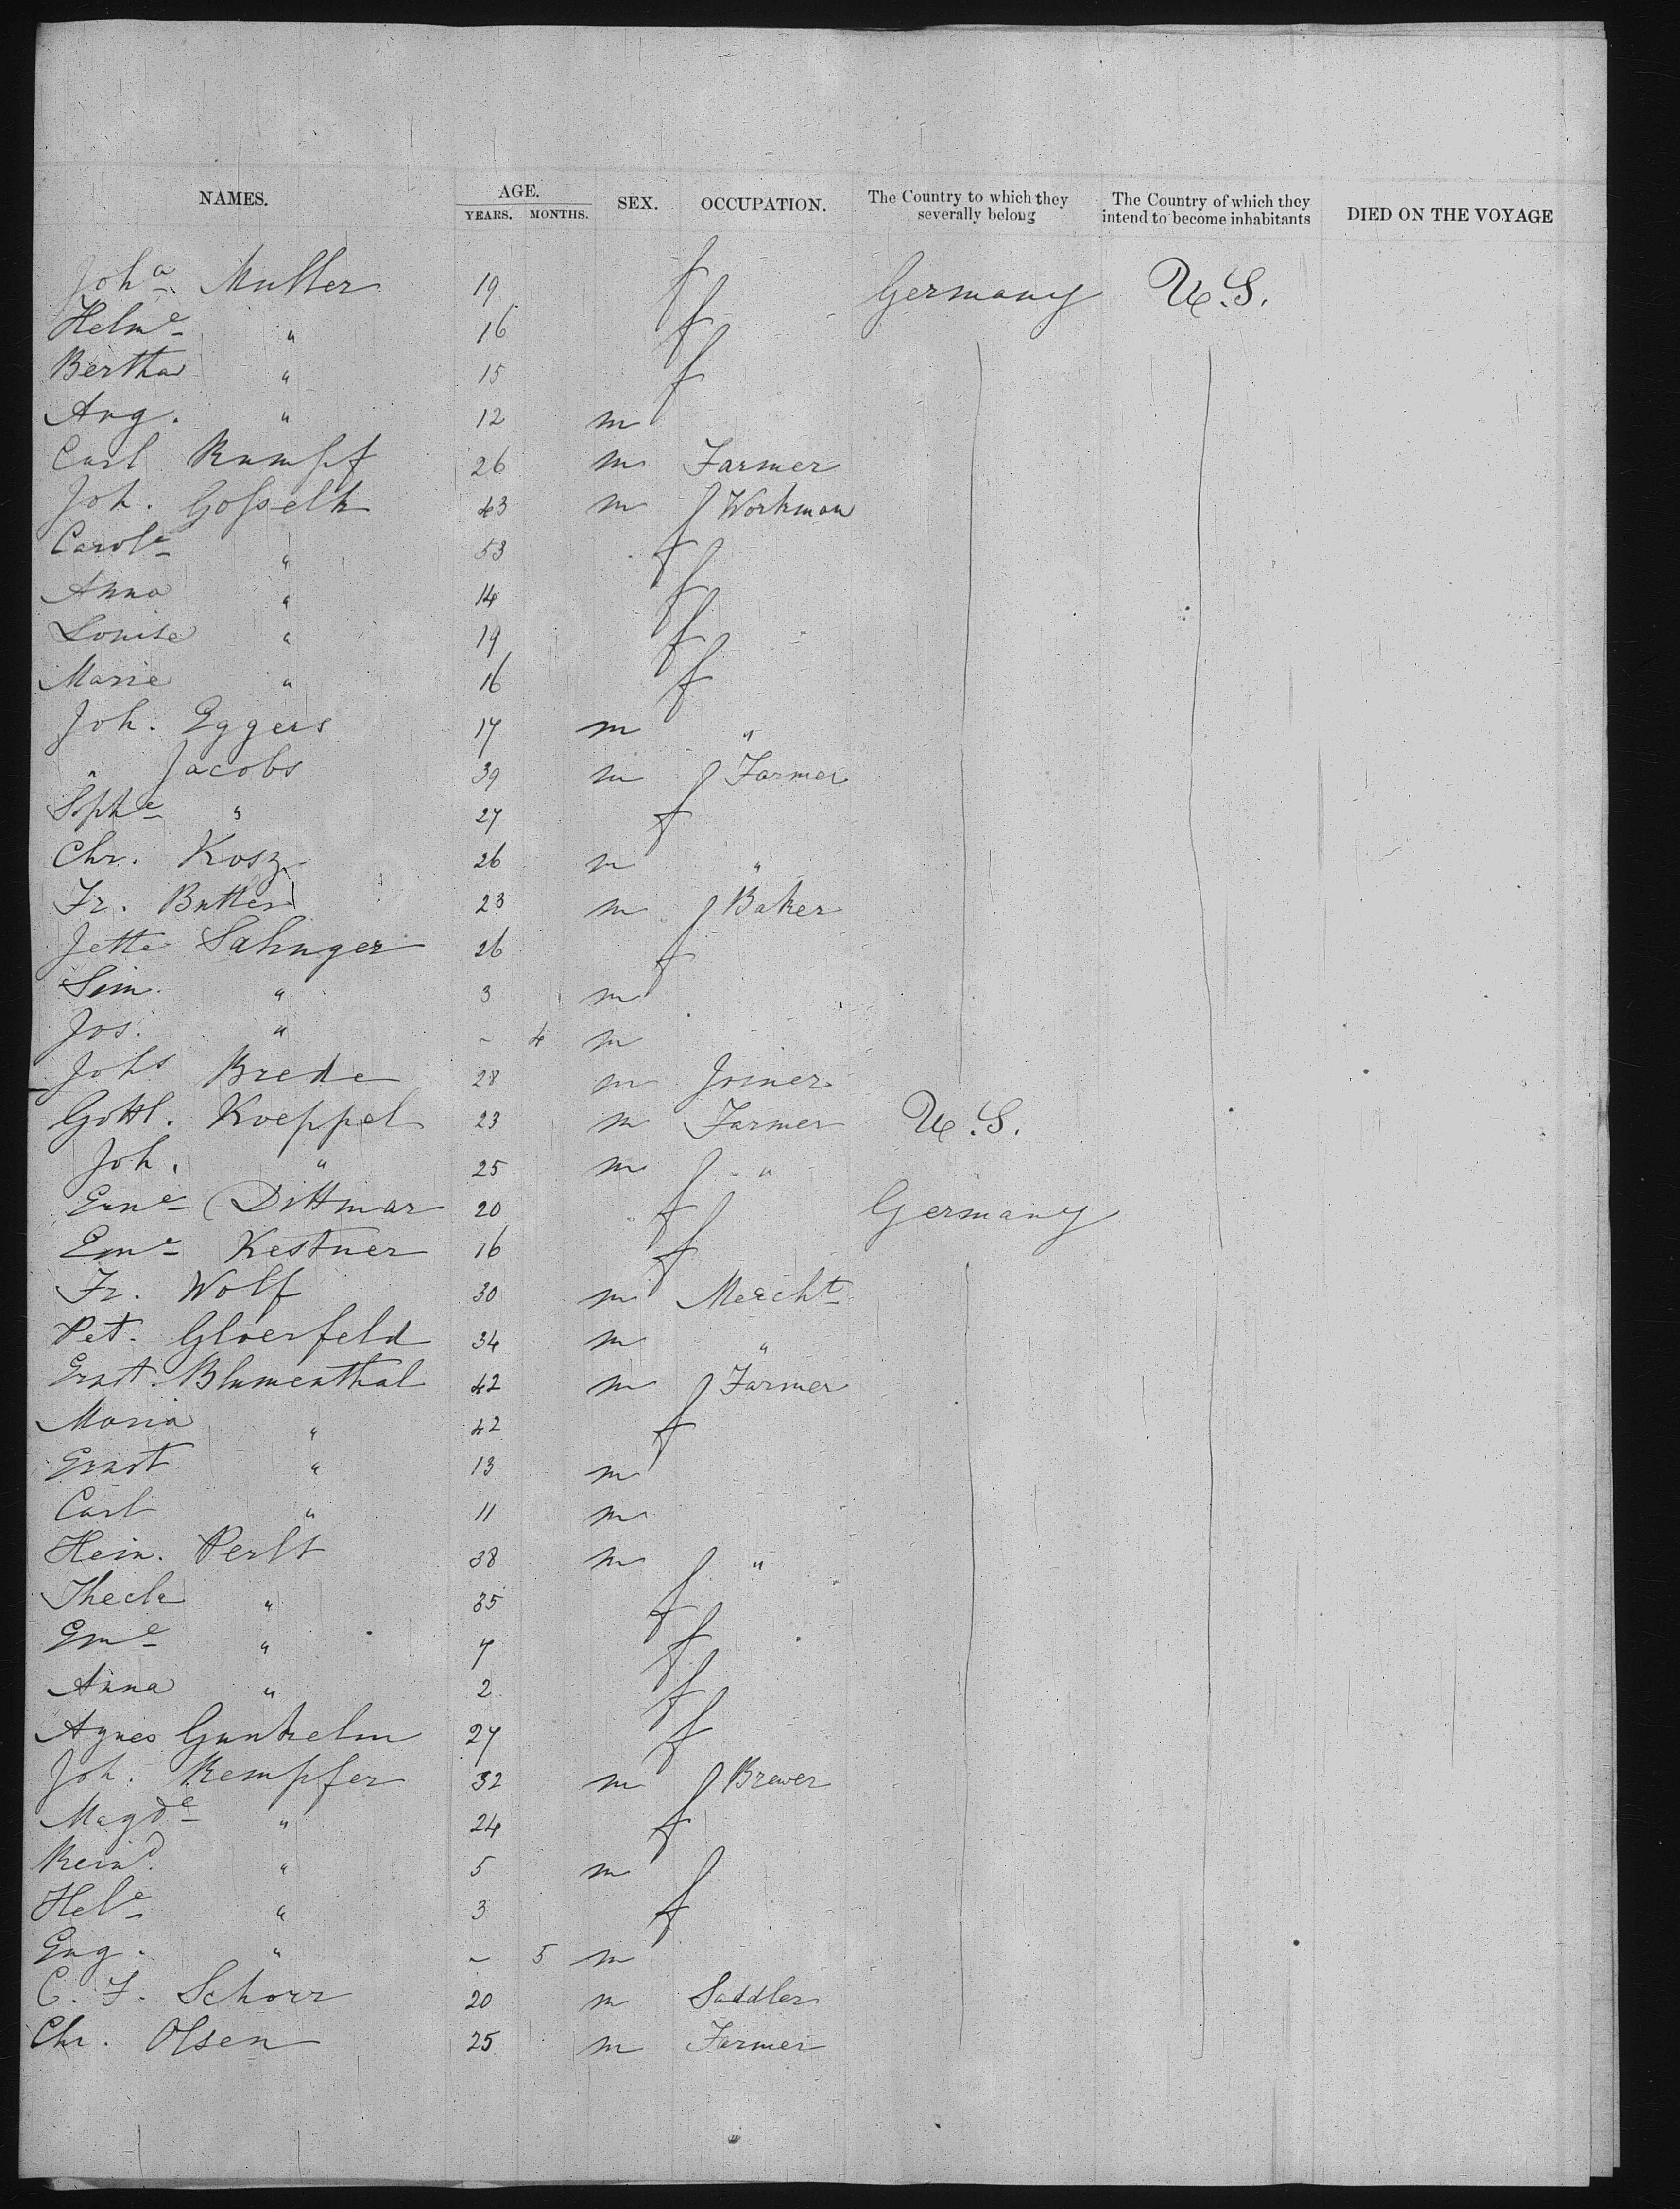 NAMES. AGE. SEX. OCCUPATION. The Country to which they severally belong The Country of which they intend to become inhabitants DIED ON THE VOYAGE
YEARS. MONTHS.
Joha. Muller 19 f Germany U.S.
Helme " 16 f
Bertha " 15 f
Aug. " 12 m
Carl Rumpf 26 m Farmer
Joh. Gosselk 43 m Workman
Carole " 53 f
Anna " 14 f
Louise " 19 f
Marie " 16 f
Joh. Eggers 17 m "
" Jacobs 39 m Farmer
Sophe " 27 f
Chr. Kosz 26 m "
Fr. Butter 23 m Baker
Jette Sahnger 26 f
Sim. " 3 m
Jos. " - 4 m
Johs Brede 28 m Joiner
Gottl. Koeppel 23 m Farmer U.S.
Joh. " 25 m "
Erne Dittmar 20 f Germany
Eme Kestner 16 f
Fr. Wolf 30 m Mercht
Pet. Gloerfeld 34 m "
Ernst. Blumenthal 42 m Farmer
Maria " 42 f
Ernst " 13 m
Carl " 11 m
Hein. Perlt 38 m "
Thecla " 35 f
Eme " 7 f
Anna " 2 f
Agnes Gunkelm 27 f
Joh. Kempfer 32 m Brewer
Magde " 24 f
Reind. " 5 m
Hele " 3 f
Eug. " - 5 m
C. F. Schorr 20 m Saddler
Chr. Olsen 25 m Farmer